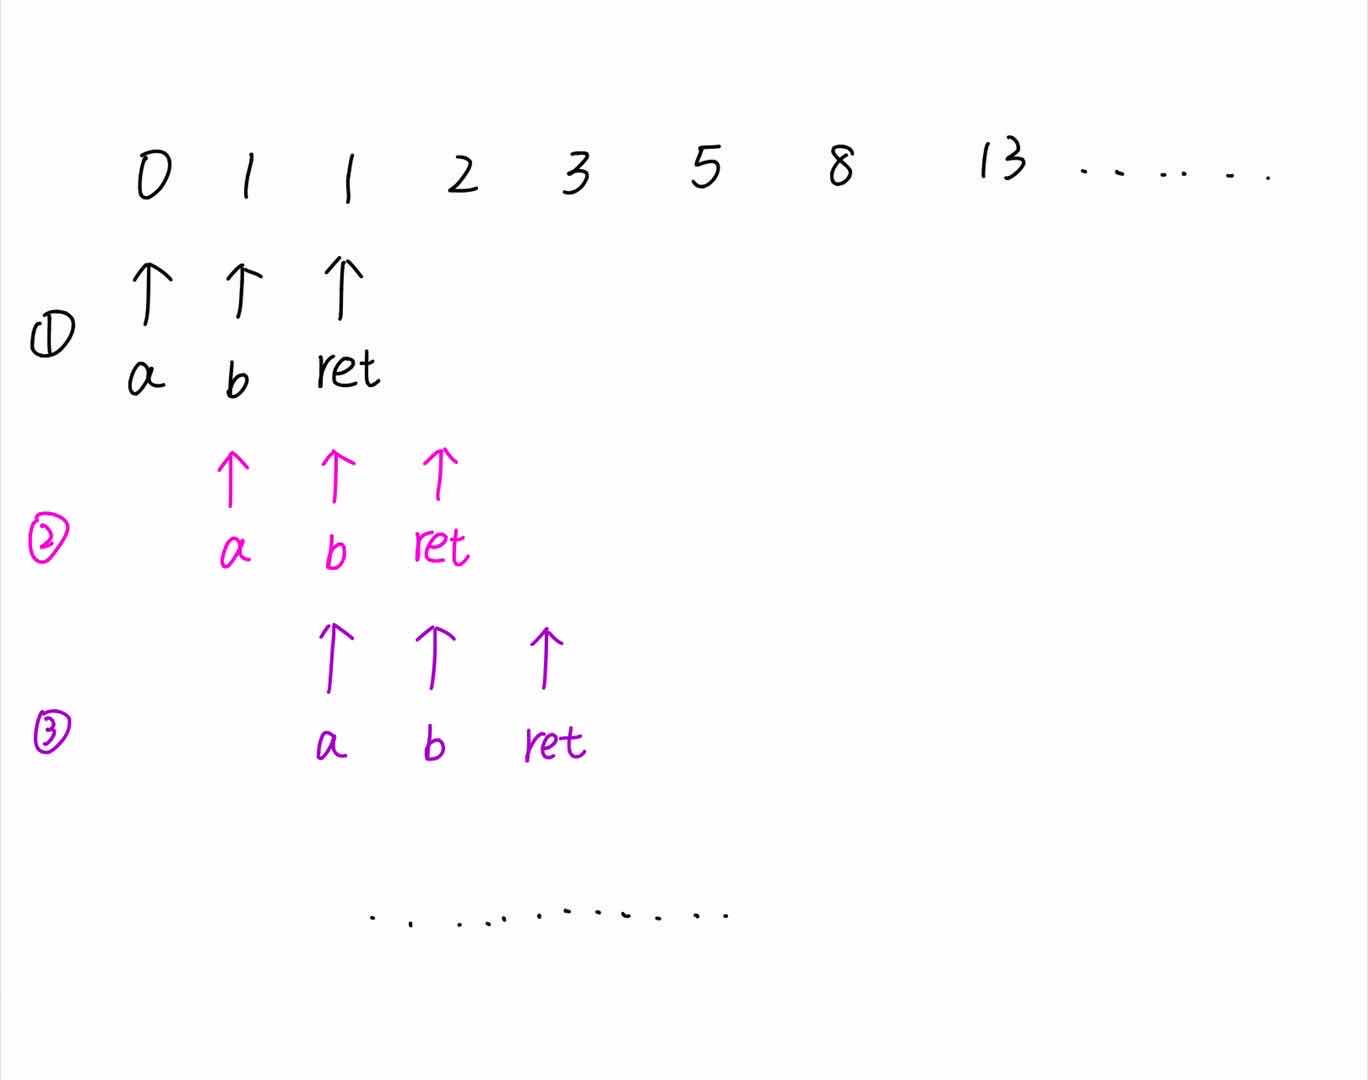 0 1 1 2 3 5 8 13 ......
① a b ret
② a b ret
③ a b ret
............